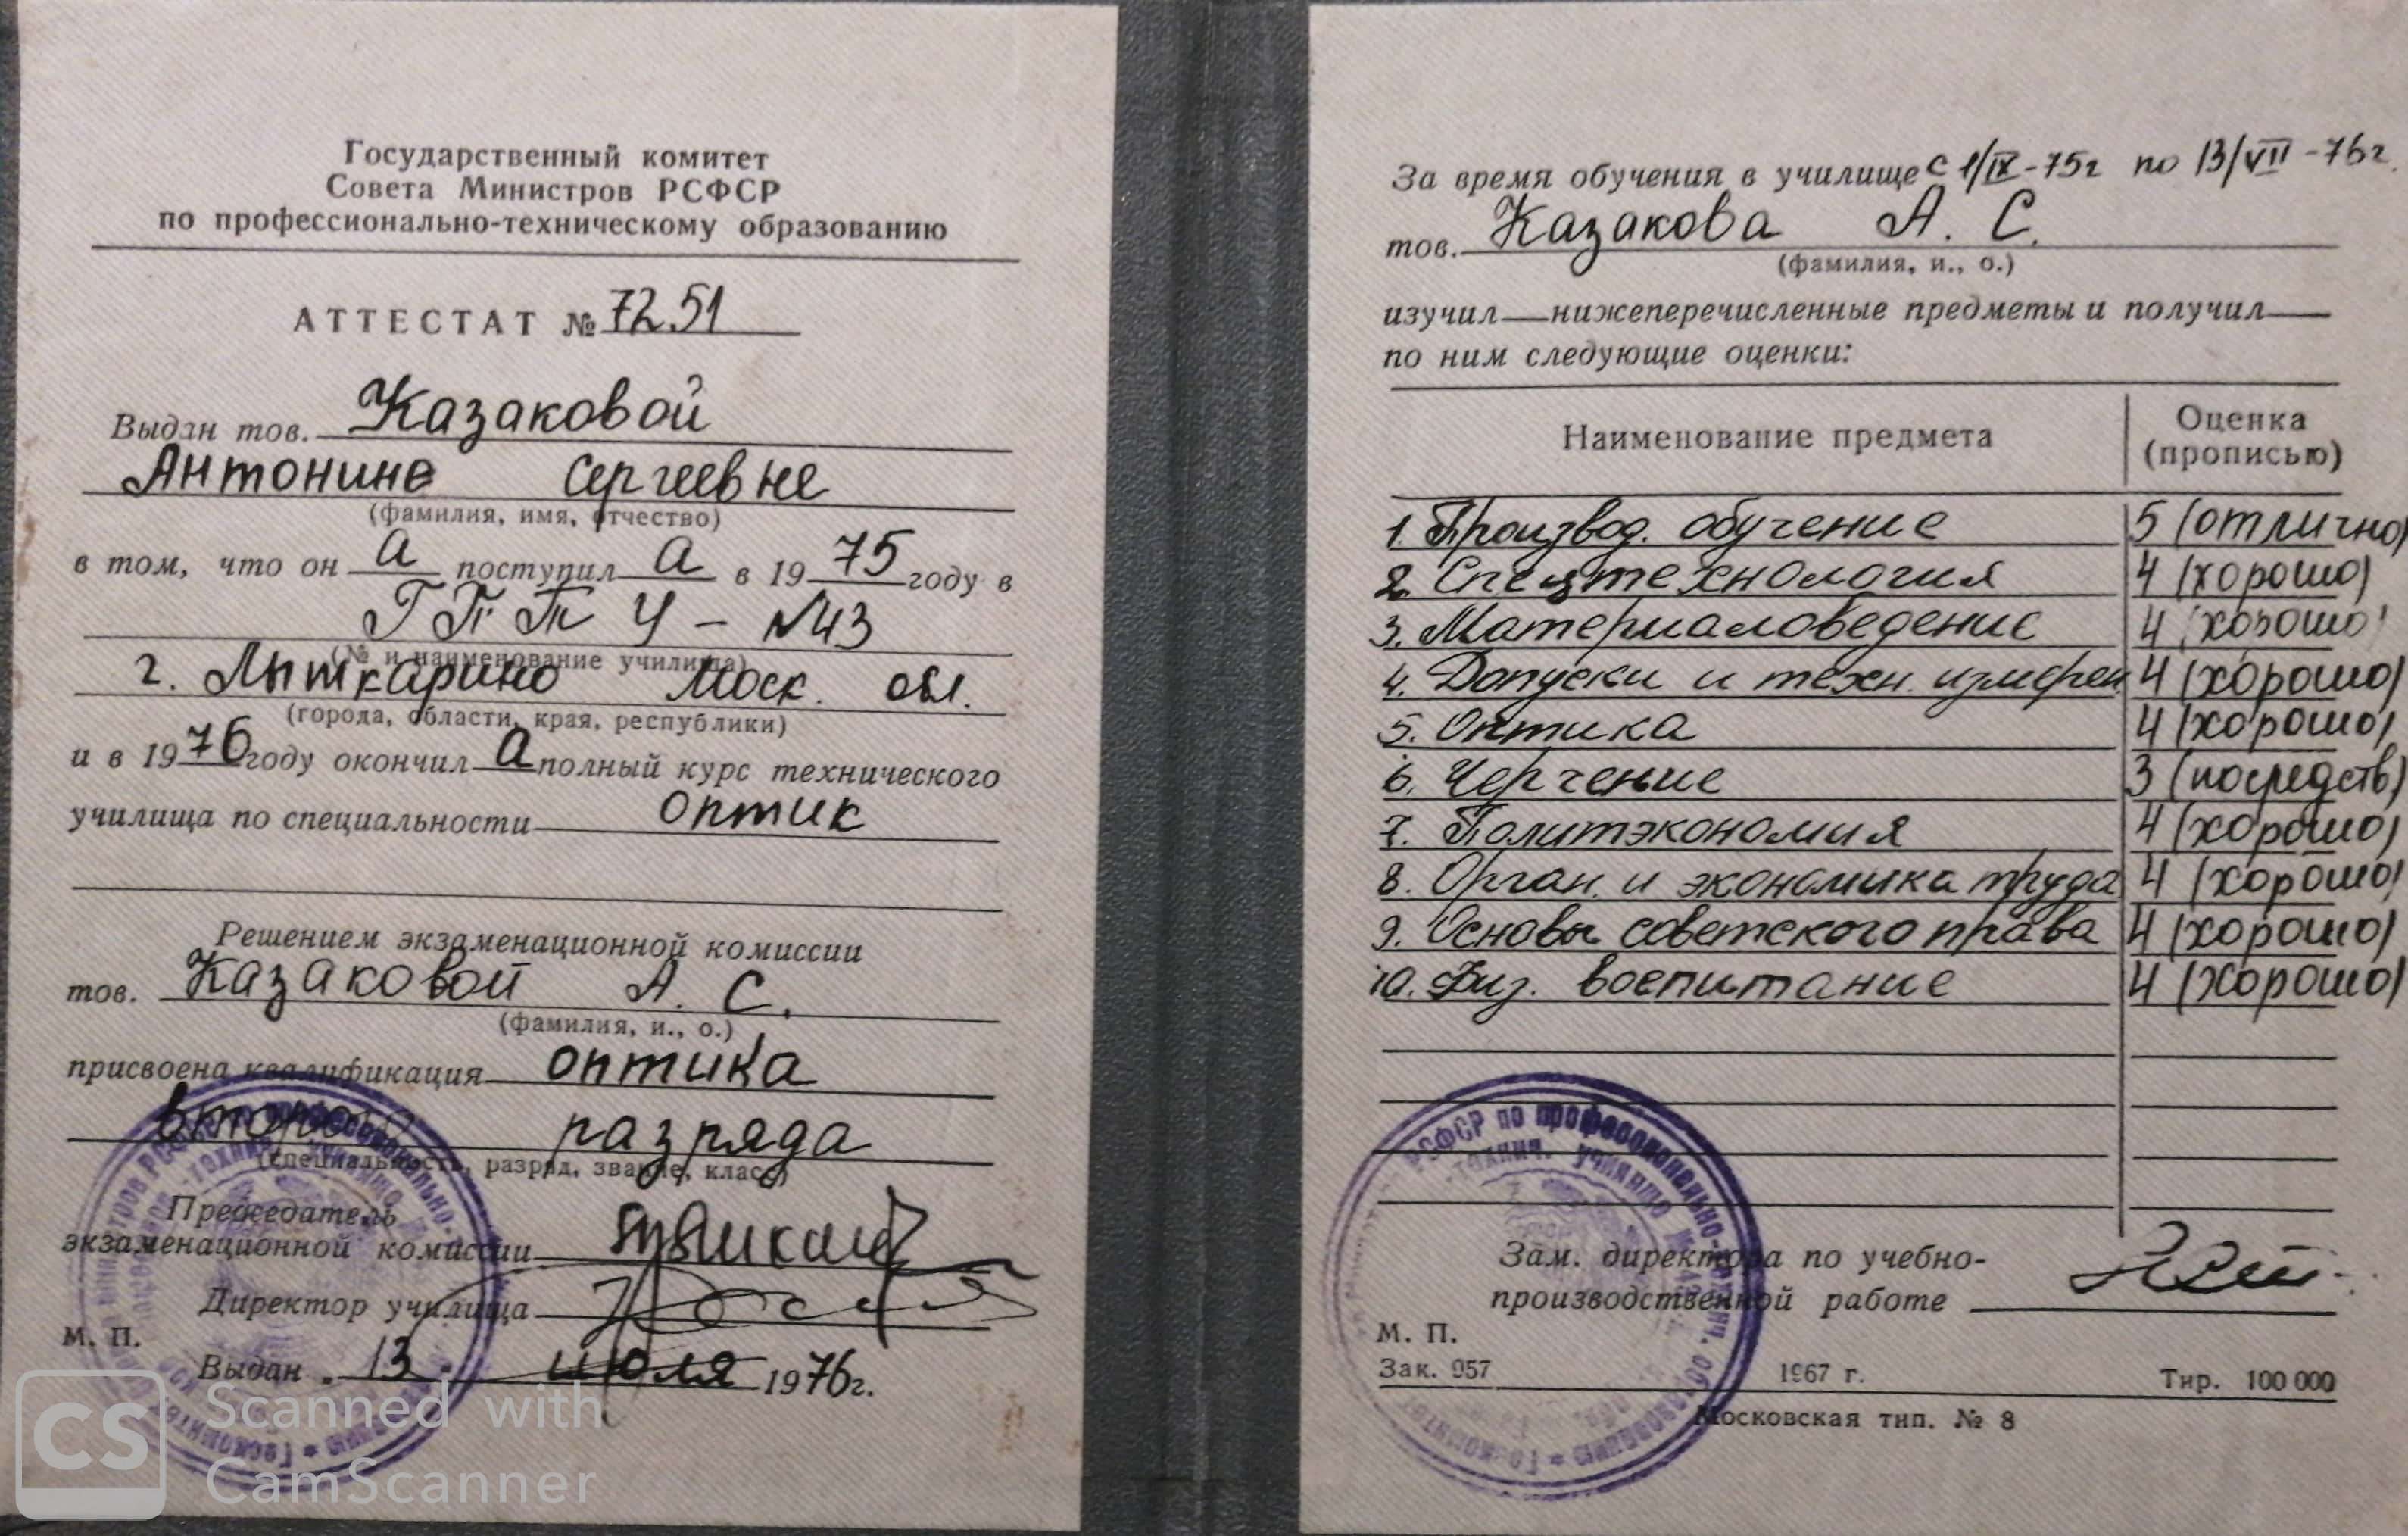 Государственный комитет
Совета Министров РСФСР
по профессионально-техническому образованию
АТТЕСТАТ № 7251
Выдан тов. Казаковой
Антонине Сергеевне
(фамилия, имя, отчество)
в том, что он а поступил а в 1975 году в
ГПТУ - №43
(№ и наименование училища)
г. Лыткарино Моск. обл.
(города, области, края, республики)
и в 1976 году окончил а полный курс технического
училища по специальности оптик
Решением экзаменационной комиссии
тов. Казаковой А. С.
(фамилия, и., о.)
присвоена квалификация оптика
второго разряда
(специальность, разряд, звание, класс)
Председатель
экзаменационной комиссии
Директор училища
М. П.
Выдан 13 июля 1976 г.
За время обучения в училище с 1/IX-75г по 13/VII-76г.
тов. Казакова А. С.
(фамилия, и., о.)
изучил нижеперечисленные предметы и получил
по ним следующие оценки:
Наименование предмета Оценка
(прописью)
1. Производ. обучение 5 (отлично)
2. Спецтехнология 4 (хорошо)
3. Материаловедение 4 (хорошо)
4. Допуски и техн. измерен 4 (хорошо)
5. Оптика 4 (хорошо)
6. Черчение 3 (посредств)
7. Политэкономия 4 (хорошо)
8. Орган. и экономика труда 4 (хорошо)
9. Основы советского права 4 (хорошо)
10. Физ. воспитание 4 (хорошо)
РСФСР по профессионально-
училище
Зам. директора по учебно-
производственной работе
М. П.
Зак. 957 1967 г. Тир. 100 000
Московская тип. № 8
CS Scanned with
CamScanner